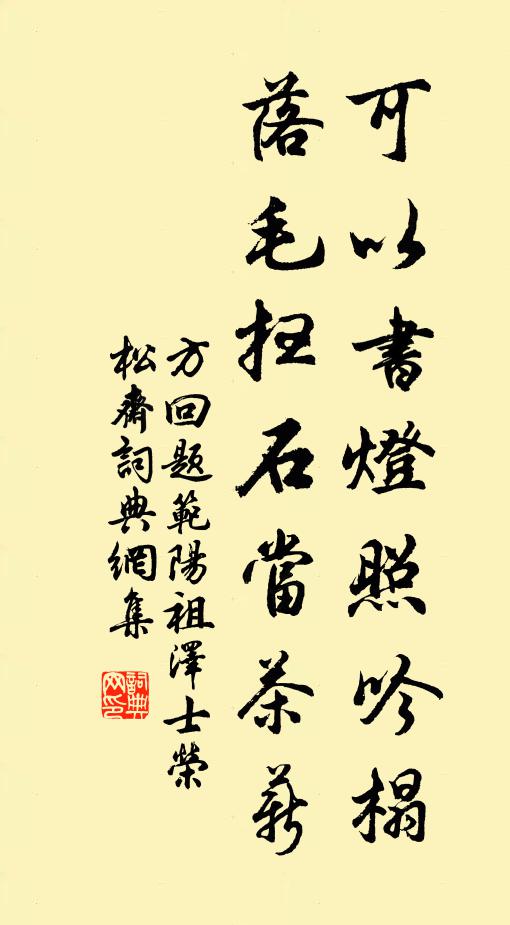 可以書燈照吟榻
落毛石當茶薪
方回题範陽祖澤士榮
松齋詞典網集
詞典
网印